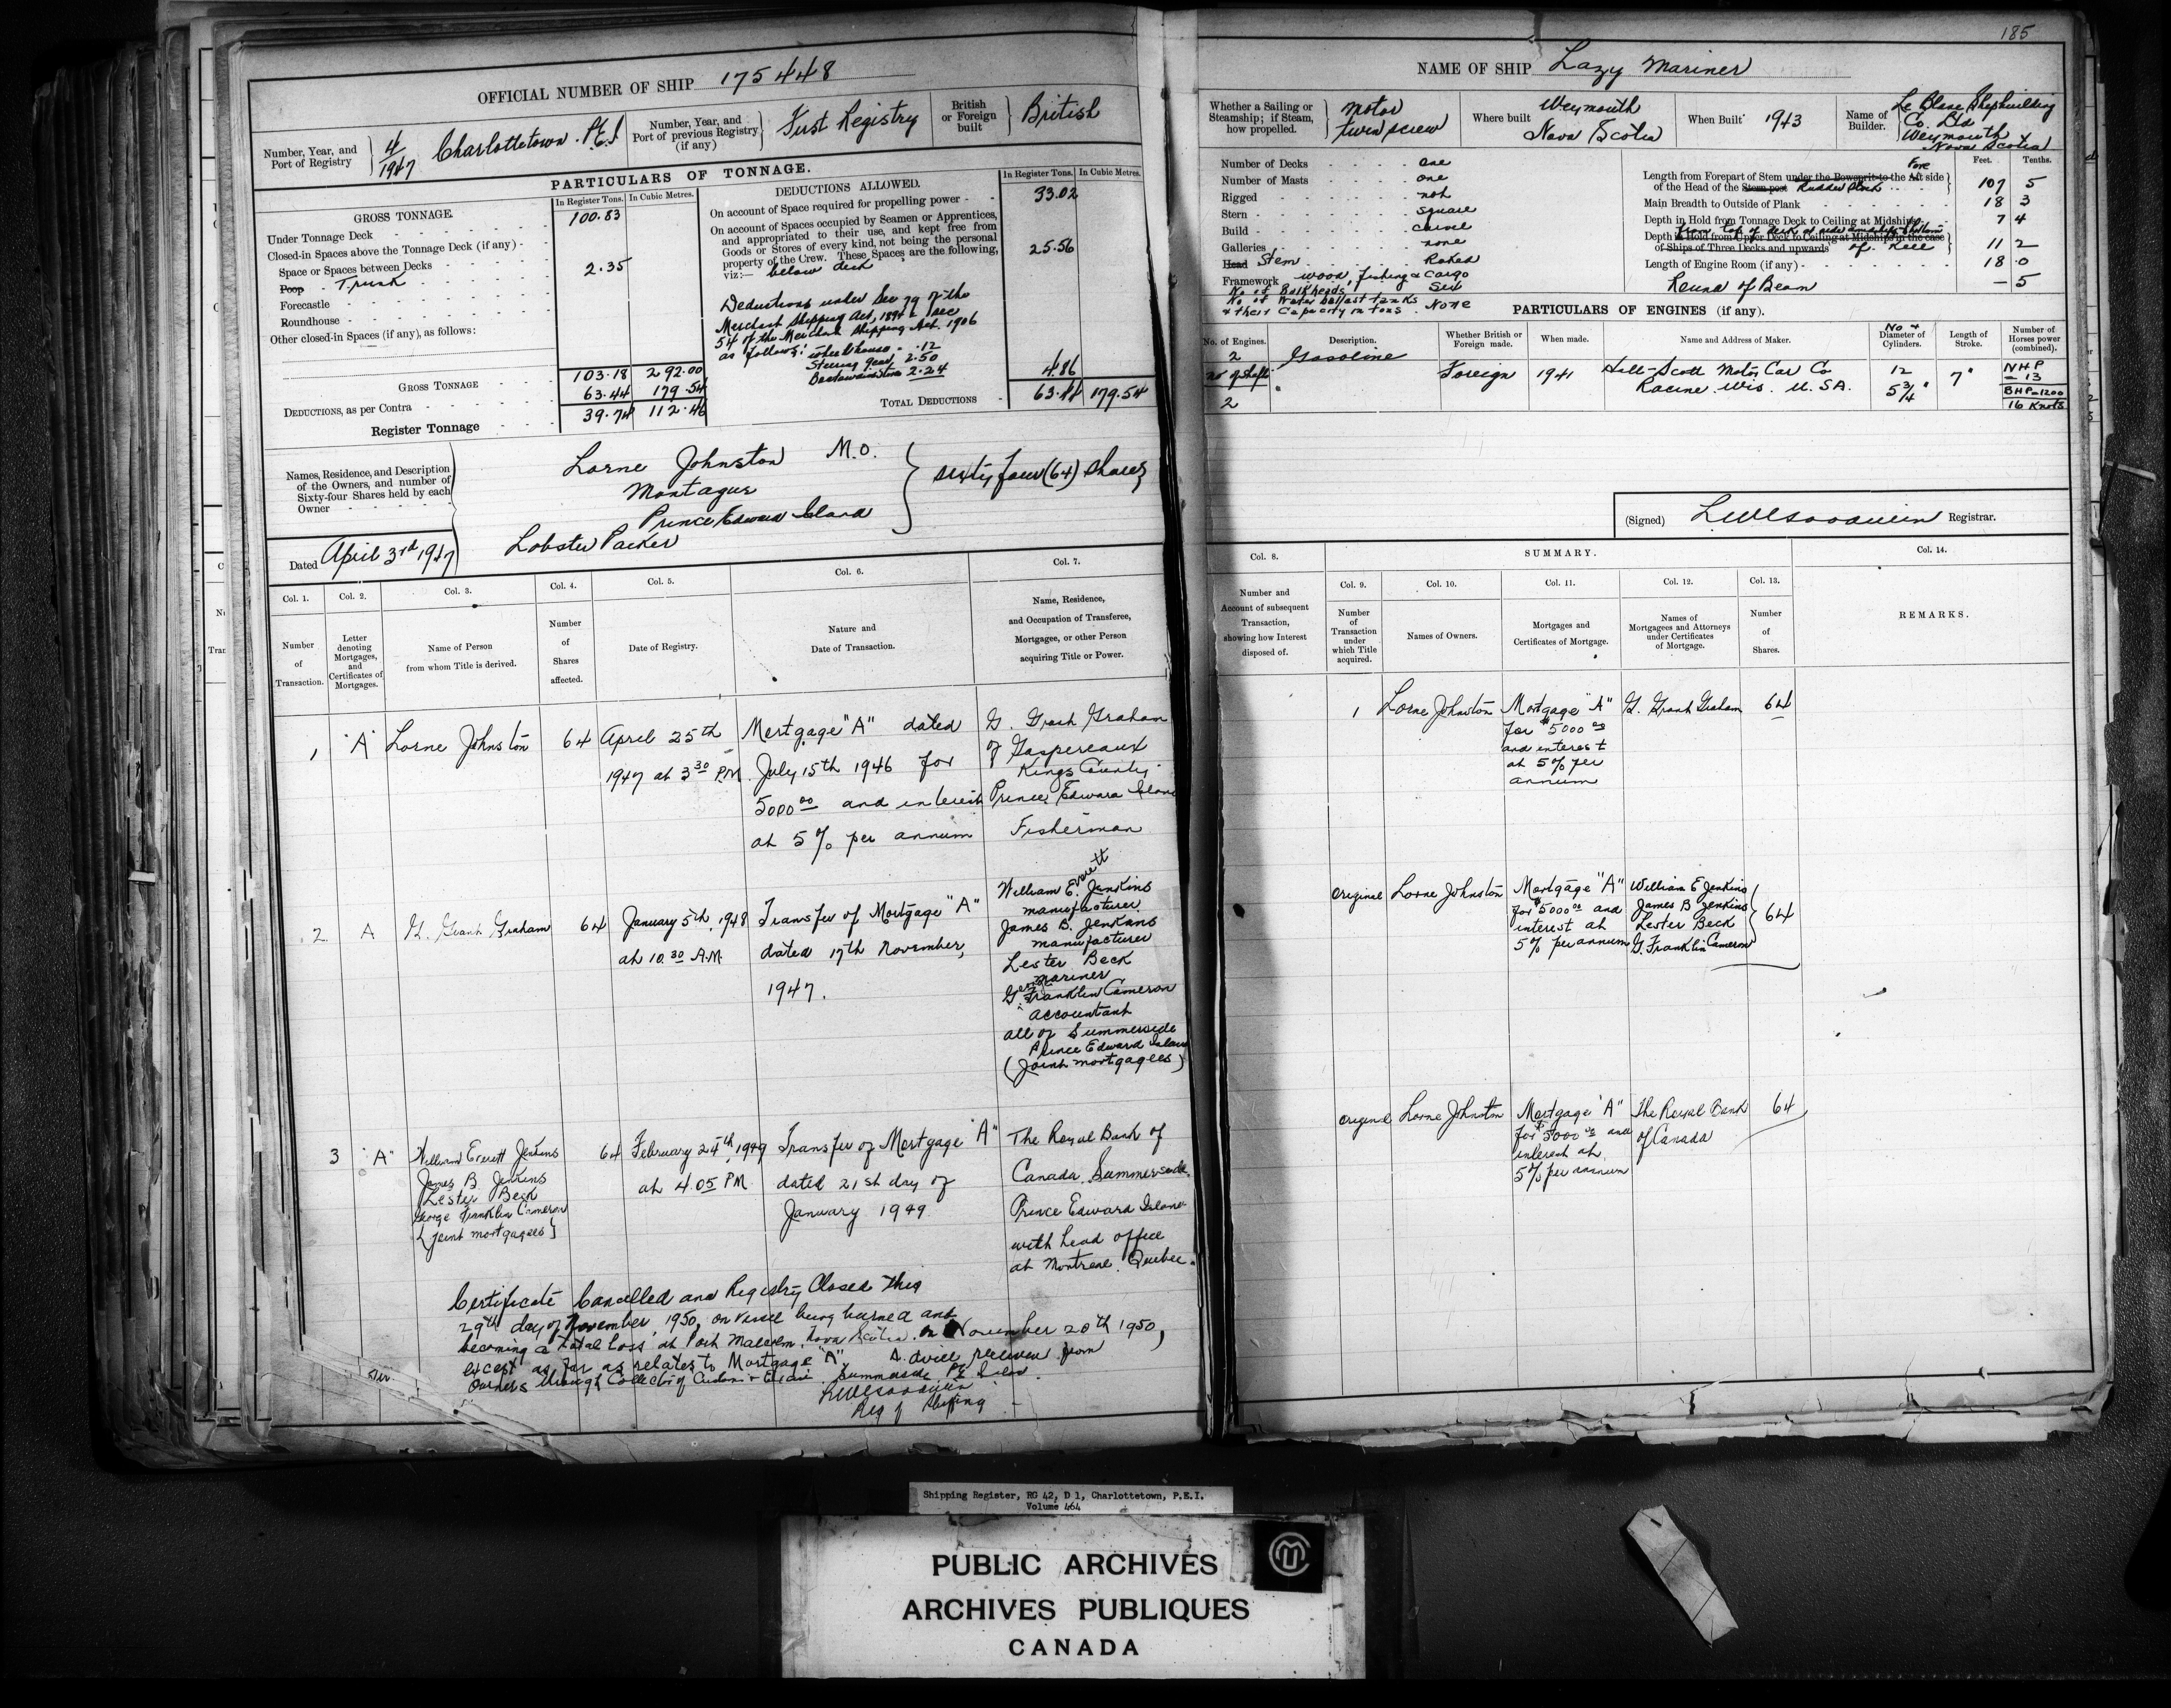 185
OFFICIAL NUMBER OF SHIP 175448
Number, Year, and Port of Registry 4/1947 Charlottetown. P.E.I
Number, Year, and Port of previous Registry (if any) First Registry
British or Foreign built British
PARTICULARS OF TONNAGE.
GROSS TONNAGE.
In Register Tons. In Cubic Metres.
Under Tonnage Deck 100.83
Closed-in Spaces above the Tonnage Deck (if any) -
Space or Spaces between Decks
Poop Trunk 2.35
Forecastle
Roundhouse
Other closed-in Spaces (if any), as follows:
GROSS TONNAGE 103.18 292.00
DEDUCTIONS, as per Contra 63.44 179.54
Register Tonnage 39.74 112.46
DEDUCTIONS ALLOWED.
In Register Tons. In Cubic Metres.
On account of Space required for propelling power 33.02
On account of Spaces occupied by Seamen or Apprentices,
and appropriated to their use, and kept free from
Goods or Stores of every kind, not being the personal
property of the Crew. These Spaces are the following,
viz:— below deck 25.56
Deductions under Sec 79 of the
Merchant Shipping Act, 1894 & sec
54 of the Merchant Shipping Act. 1906
as follows: wheelhouse .12
Steering gear 2.50
Boatswains stores 2.24
4.86
TOTAL DEDUCTIONS 63.44 179.54
Names, Residence, and Description
of the Owners, and number of
Sixty-four Shares held by each
Owner
Lorne Johnston M.O.
Montague
Prince Edward Island
Lobster Packer
sixty four (64) shares
Dated April 3rd 1947
Col. 1. Col. 2. Col. 3. Col. 4. Col. 5. Col. 6. Col. 7.
Number of Transaction.
Letter denoting Mortgages, and Certificates of Mortgages.
Name of Person from whom Title is derived.
Number of Shares affected.
Date of Registry.
Nature and Date of Transaction.
Name, Residence, and Occupation of Transferee, Mortgagee, or other Person acquiring Title or Power.
1 "A" Lorne Johnston 64 April 25th Mortgage "A" dated G. Grant Graham
1947 at 3 30 P.M. July 15th 1946 for of Gaspereaux
Kings County
5000 00 and interest Prince Edward Island
at 5% per annum Fisherman
2 A G. Grant Graham 64 January 5th, 1948 Transfer of Mortgage "A"
at 10.30 A.M. dated 17th November,
1947.
William Everett Jenkins
manufacturer
James B. Jenkins
manufacturer
Lester Beck
mariner
George Franklin Cameron
accountant
all of Summerside
Prince Edward Island
(Joint mortgagees)
3 "A" William Everett Jenkins
James B. Jenkins
Lester Beck
George Franklin Cameron
{joint mortgagees}
64 February 24th, 1949
at 4.05 PM
Transfer of Mortgage "A"
dated 21st day of
January 1949
The Royal Bank of
Canada Summerside
Prince Edward Island
with head office
at Montreal. Quebec.
Certificate Cancelled and Registry Closed this
29th day of November 1950, on vessel being burned and
becoming a total loss at Port Malcolm, Nova Scotia. on November 20th 1950,
except as far as relates to Mortgage "A". Advice received from
owners through Collector of Customs & Excise. Summerside P.E. Island.
Reg of Shipping
NAME OF SHIP Lazy Mariner
Whether a Sailing or Steamship; if Steam, how propelled. Motor Twin screw
Where built Weymouth Nova Scotia
When Built 1943
Name of Builder. Le Blanc Shipbuilding
Co. Ltd
Weymouth
Nova Scotia
Number of Decks one
Number of Masts one
Rigged not
Stern square
Build carvel
Galleries none
Head Stem Raked
Framework wood, fishing & cargo
No. of Bulkheads Six
No of Water ballast tanks
& their Capacity in tons. None
Feet. Tenths.
Length from Forepart of Stem under the Bowsprit to the Fore Aft side
of the Head of the Stern post Rudder Stock 107 5
Main Breadth to Outside of Plank 18 3
Depth in Hold from Tonnage Deck to Ceiling at Midships 7 4
from top of deck at side amidships to bottom
Depth in Hold from Upper Deck to Ceiling at Midships in the case
of Ships of Three Decks and upwards of Keel 11 2
Length of Engine Room (if any) 18 .0
Round of Beam — 5
PARTICULARS OF ENGINES (if any).
No. of Engines. Description. Whether British or Foreign made. When made. Name and Address of Maker. No & Diameter of Cylinders. Length of Stroke. Number of Horses power (combined).
2 Gasoline Foreign 1941 Hall-Scott Motor Car Co 12 7" NHP
No of shafts Racine. Wis. U.S.A. 5 3/4" = 13
2 BHP=1200
16 Knots
(Signed) Registrar.
Col. 8. SUMMARY. Col. 14.
Col. 9. Col. 10. Col. 11. Col. 12. Col. 13.
Number and Account of subsequent Transaction, showing how Interest disposed of.
Number of Transaction under which Title acquired.
Names of Owners.
Mortgages and Certificates of Mortgage.
Names of Mortgagees and Attorneys under Certificates of Mortgage.
Number of Shares.
REMARKS.
1 Lorne Johnston Mortgage "A" G. Grant Graham 64
for $5000 00
and interest
at 5% per
annum
Original Lorne Johnston Mortgage "A" William E Jenkins
for $5000 00 and James B Jenkins 64
interest at Lester Beck
5% per annum G. Franklin Cameron
Original Lorne Johnston Mortgage "A" The Royal Bank 64
for $5000 00 and of Canada
interest at
5% per annum
Shipping Register, RG 42, D 1, Charlottetown, P.E.I.
Volume 464
PUBLIC ARCHIVES
ARCHIVES PUBLIQUES
CANADA